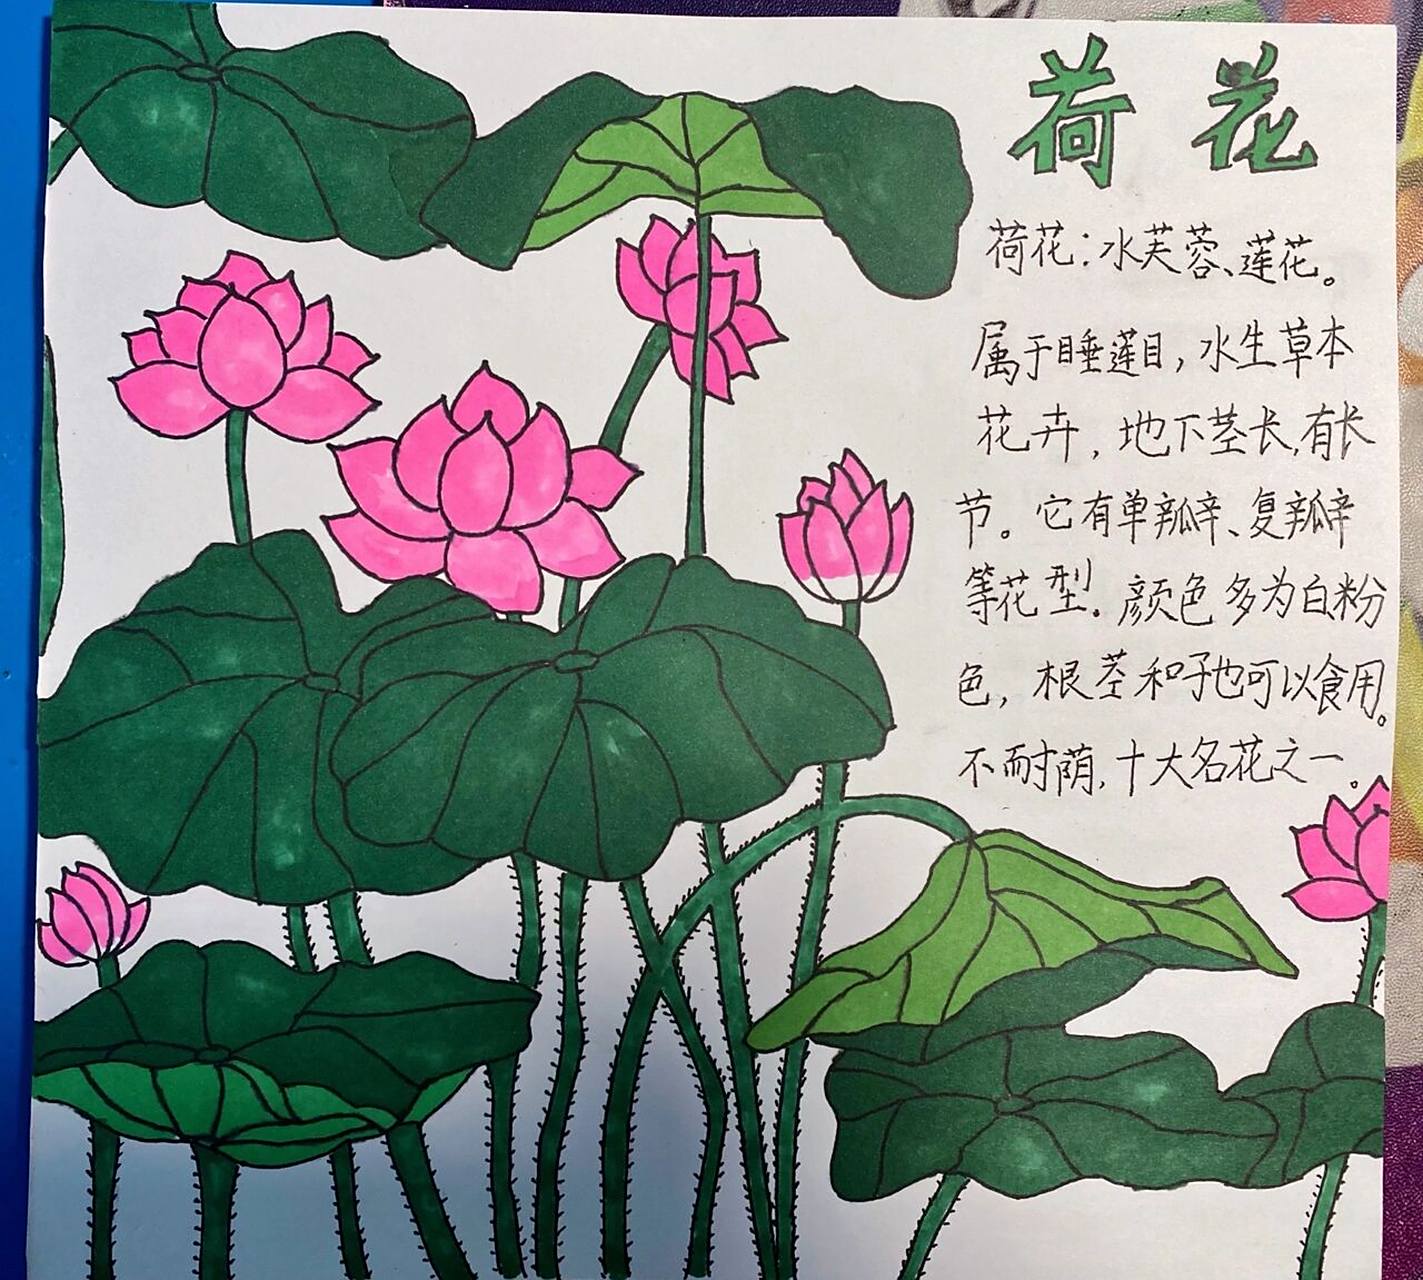 荷花
荷花：水芙蓉、莲花。
属于睡莲目，水生草本
花卉，地下茎长，有长
节。它有单瓣、复瓣
等花型。颜色多为白粉
色，根茎和子也可以食用。
不耐荫，十大名花之一。